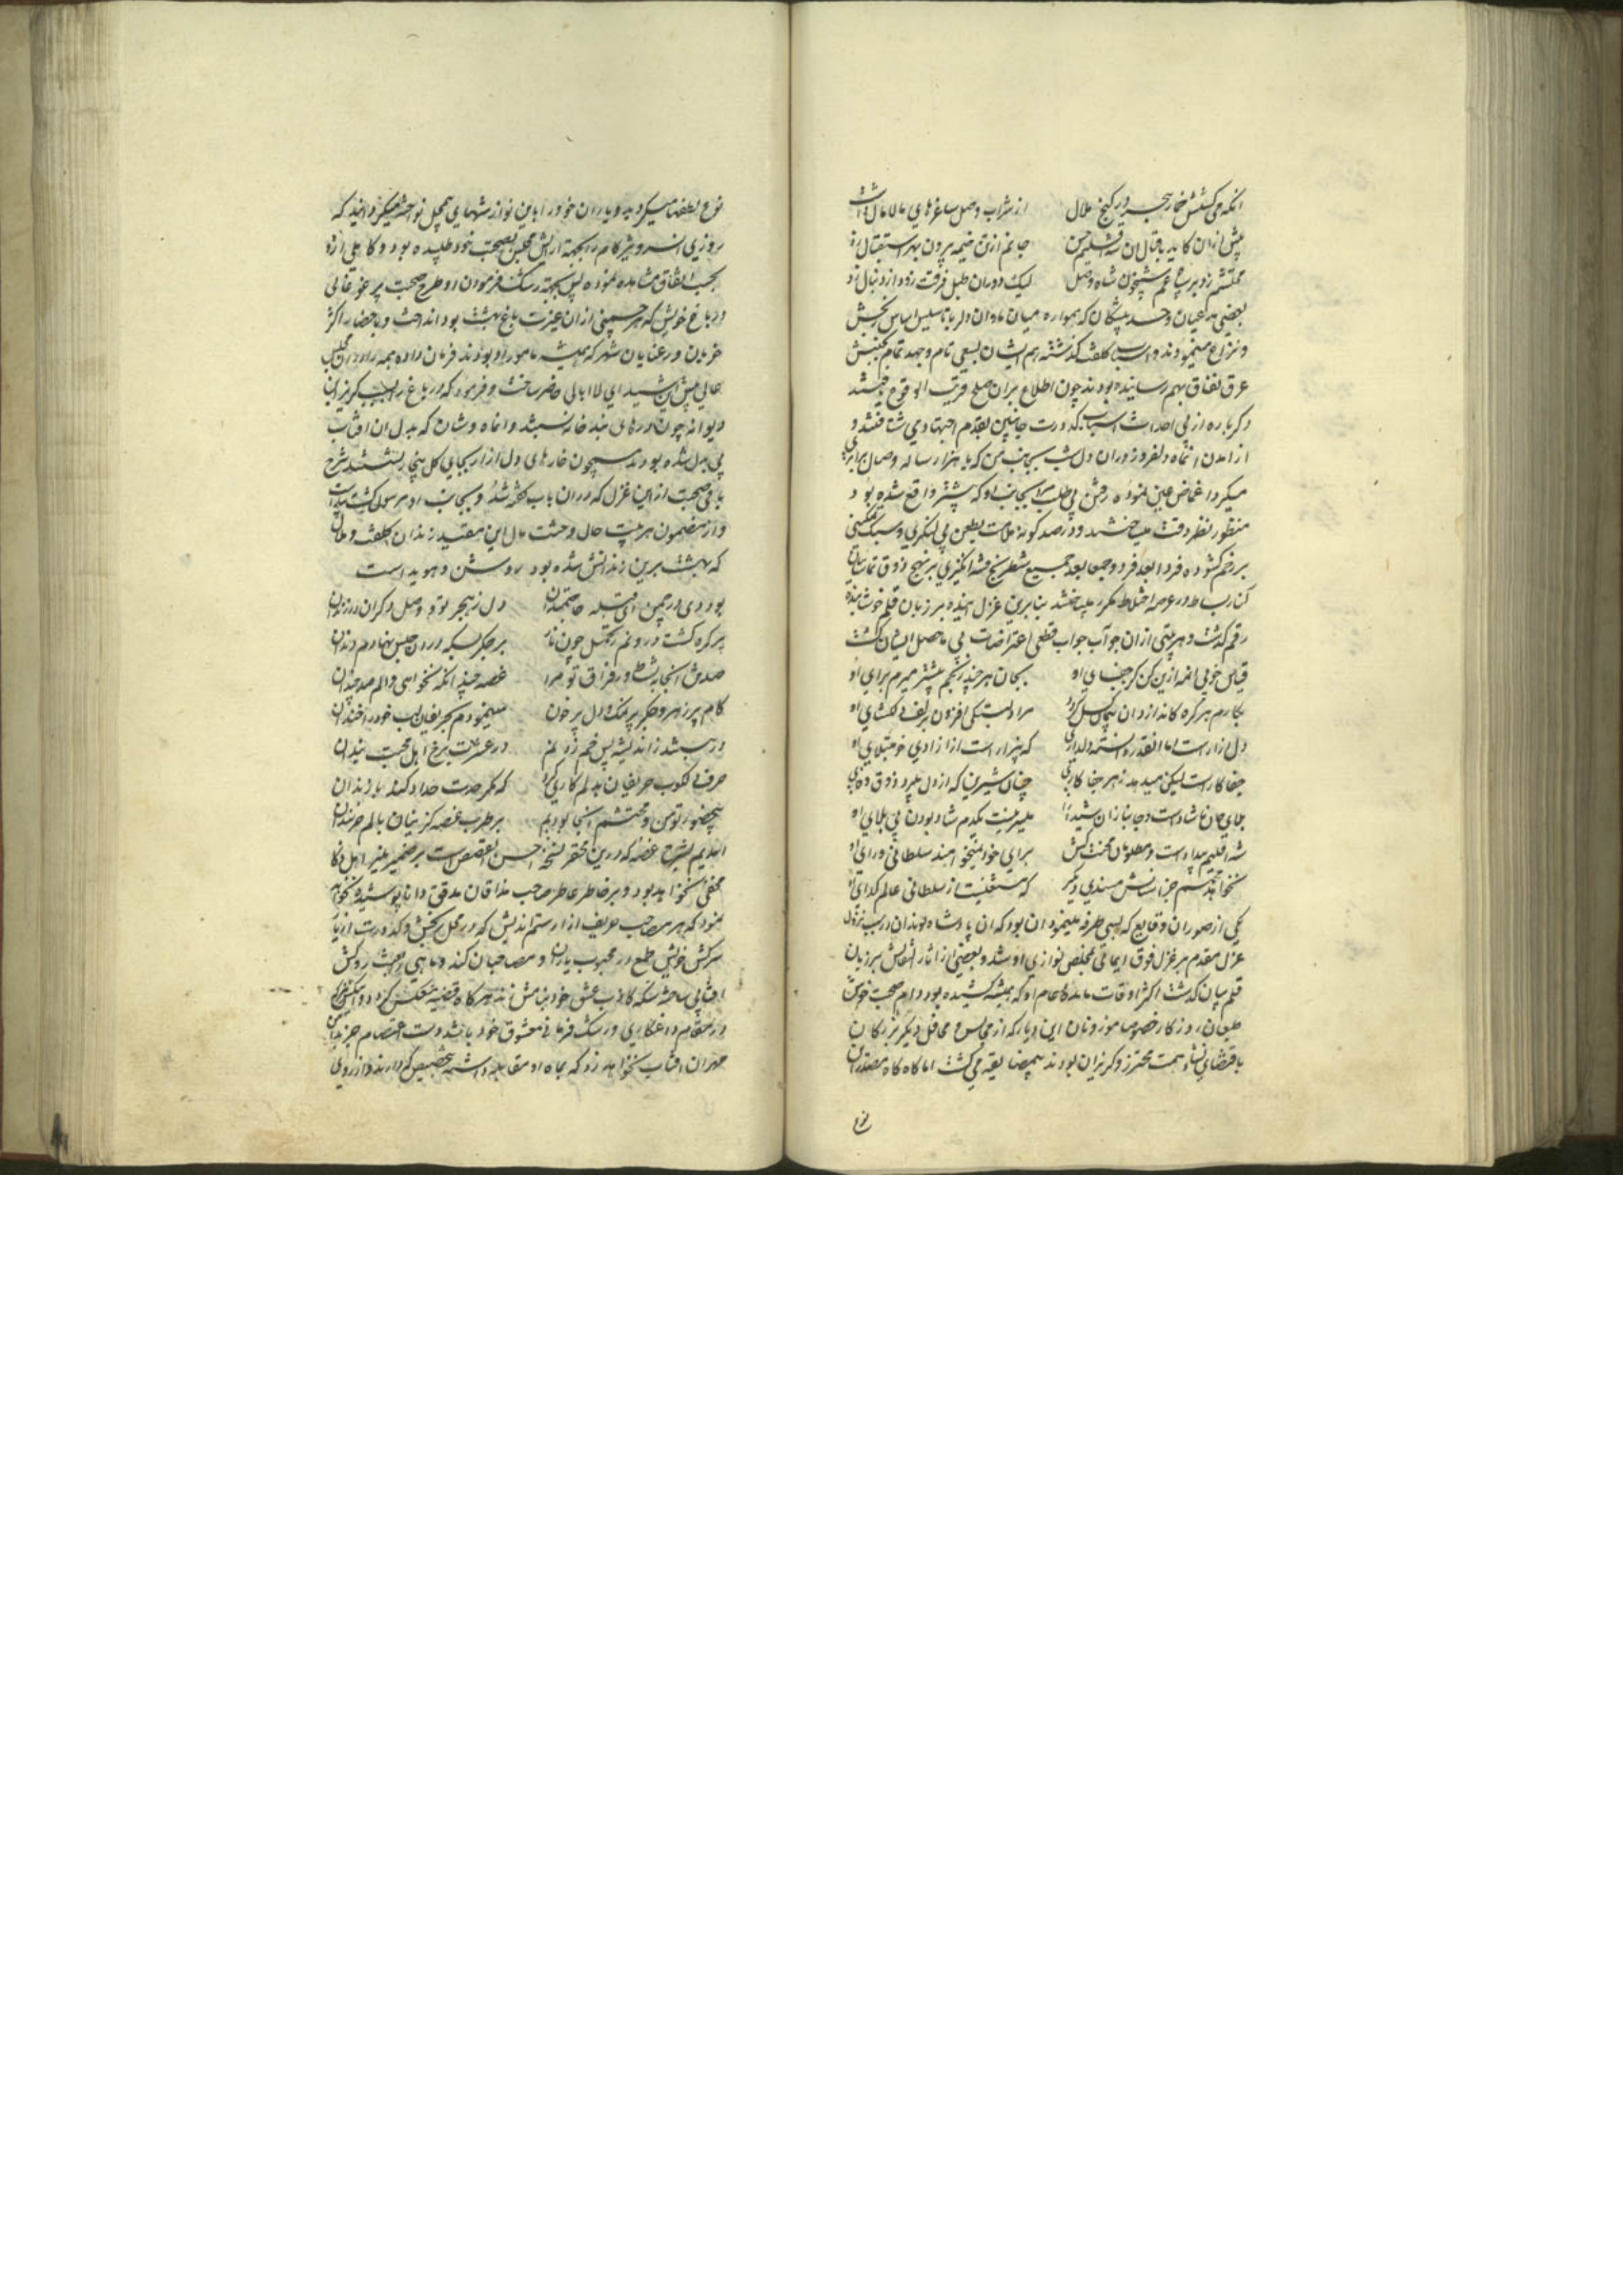 انکه می کشتش خمار هجر در کنج ملال از شراب وصل ساغرهای مالامال داشت
پیش ازان کاید باقبال ان شه اقلیم حسن جانم از تن خیمه بیرون بهر استقبال زد
محتشم زد بر سپاه غم شبیخون شاه وصل لیک دوران طبل فرقت زود از دنبال زد
بعضی مدعیان و حسدپیشکان که همواره میان ما و ان دلربا تاسیس اساس رنجش
و نزاع مینمودند و اسباب کلفت کذشته هم ایشان بسعی تام و جهد تمام
عرق نفاق بهم رسانیده بودند چون اطلاع بران صلح قریب الوقوع یافتند
دکرباره از پی احداث اسباب کدورت جانبین بقدم اجتهاد می شتافتند و
از امدن انماه دلفروز دران دل شب بجانب من که با هزار ساله وصال برابری
میکرد اغماض عین نموده رفتن بی طلب مرا بجانب او که پیشتر واقع شده بود
منظور نظر دقت میساختند و در صد کونه ملامت بطعن بی لنکری و سبک تمکینی
بر رخم کشوده فردا بعد فرد و جمعا بعد جمیع شطرنج فتنه انکیزی بر نهج ذوق تماشاییان
کنار بساط در عرصه اختلاط مکرر میباختند بنابرین غزل اینده بر زبان قلم خوشاینده
رقم کذشت و هر بیتی ازان جواب قطعی اعتراضات بی ماحصل ایشان کشت
قیاس خوبی انمه ازین کن کز جفای او بجان هر چند رنجم بیشتر میرم برای او
بکارم هر کره کاندازد ان پیمان کسل کردد مرا دلبستکی افزون بزلف دلکشای او
دل ازار است اما انقدر دانسته دلداری که بیزار است از ازادی خود مبتلای او
جفاکار است لیکن میدهد زهر جفا کاری چنان شیرین که از دل میبرد ذوق وفای او
بلای جان ناشاد است و جانبازان شیدا را میسر نیست یکدم شاد بودن بی بلای او
شه اقلیم بیداد است و مظلومان محنت کش برای خود نمیخواهند سلطانی ورای او
نخواهد محتشم جز استانش مسندی دیکر که مستغنیست از سلطانی عالم کدای او
یکی از صور ان وقایع که بسی طرفه مینمود ان بود که ان پادشاه بلندان در سبب نزول
غزل مقدم بر غزل فوق ایمائی بمخلص نوازی او شد و بعضی از اثار التفاتش بر زبان
قلم بیان کذشت اکثر اوقات مائده انعام او که همیشه کشیده بود و ام صحبت خوش
طبعان روزکار خصوصا موزونان این دیار که از مجالس و محافل دیکر بزرکان
باقتضای نشاء همت محترز و کریزان بودند بیمضایقه می کشت اما کاه کاه مصدر ان
نوع
نوع لطفها میکردید و یاران خود را باین نوازشهای مجمل نواخته میکردانید که
روزی ان سرو شیرین کام را بجهة ارایش مجلس بصحبت خود طلبیده بود و کاهلی از او
بحسب اتفاق مشاهده نموده پس بجهة رشک فرمودن او طرح صحبت پر غوغائی
در باغ خویش که هر چمنی ازان غیرت باغ بهشت بود انداخت و باحضار اکثر
خوبان و رعنایان شهر که همیشه مامور او بودند فرمان داده همه را در ان مجلس
عالی پیش این شیدای لاابالی حاضر ساخت و فرمود که در باغ را بسبب کریز این
دیوانه چون درهای بندخانه بستند و انماه وشان که بدل ان افتاب
بی بدل شده بودند همچون خارهای دل ازار بجای کل پیش ما نشستند شرح
باقی صحبت از این غزل که دران باب کفته شد و بجانب او مرسول کشت پیداست
و از مضمون هر بیت حال وحشت مال این مقید زندان کلفت و ملال
که بهشت برین زندانش شده بود روشن و هویداست
بود دی در چمن ای قبله حاجتمندان دل ز هجر تو و وصل دکران در زندان
پر کره کشت درونم ز تحمل چون نار بر جکر بسکه دران حبس نهادم دندان
صد ش انجا به نشاط و ز فراق تو مرا غصه چندانکه نخواهی و الم صد چندان
کام پر زهر و جکر پر نمک و دل پر خون مینمودم بحریفان لب خود را خندان
در ببستند ز اندیشه پس خم زد نم در عشرت برخ اهل محبت بندان
صرف لکدکوب حریفان بدلم کاری کرد که مکر حدت حداد کند با سندان
بیحضور تو من و محتشم انجا بودیم بر طرب غصه کزینان بالم خرسندان
اندیم بشرح غصه که درین محقر نسخه احسن القصص است بر ضمیر منیر اهل ذکا
مخفی نخواهد بود و بر خاطر عاطر صاحب مذاقان مدقق دانا پوشیده نخواهد
نمود که هر مصاحب حریف ازار ستم اندیش که در محل رنجش و کدورت از یار
سرکش خویش طمع در محبوب یاران و مصاحبان کند و ماهی را بجهت روکش
افتابی ساخته سکه کاذب عشق خود بنامش زند هرکاه قضیه منعکس کردد و انکس نیز
در مقام داغکاری و رشک فرمائی معشوق خود باشد دست اعتصام جز بدامن
مهر ان افتاب نخواهد زد که بماه او مقابله داشته بتخصیص کردارند و از روی